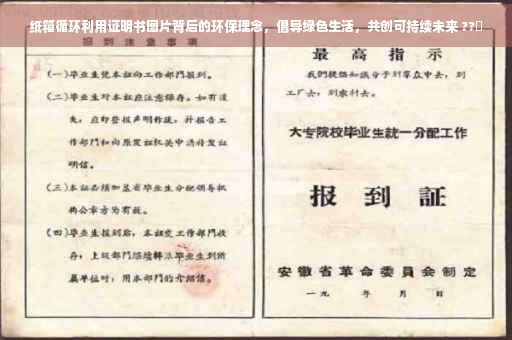 纸箱循环利用证明书图片背后的环保理念，倡导绿色生活，共创可持续未来 ??
报到注意事项
(一)毕业生凭本证向工作部门报到。
(二)毕业生对本证应注意保存。如有遗
失，应即登报声明作废，并报告工
作部门和向原发证机关申请补发证
明信。
(三)本证必须加盖省毕业生分配领导机
构公章方为有效。
(四)毕业生报到后，本证交工作部门收
存；上级部门继续转派毕业生到所
属单位时，用本部门的介绍信。
最高指示
我们提倡知识分子到群众中去，到
工厂去，到农村去。
大专院校毕业生统一分配工作
报到証
安徽省革命委員会制定
一九 年 月 日